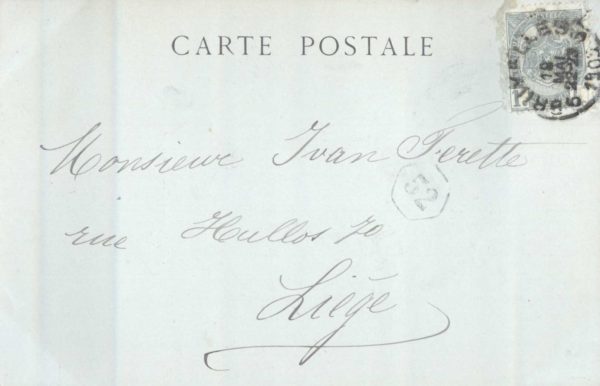 CARTE POSTALE
BRUXELLES
18 MAI
Monsieur Ivan Perette
rue Hullos 70
Liége